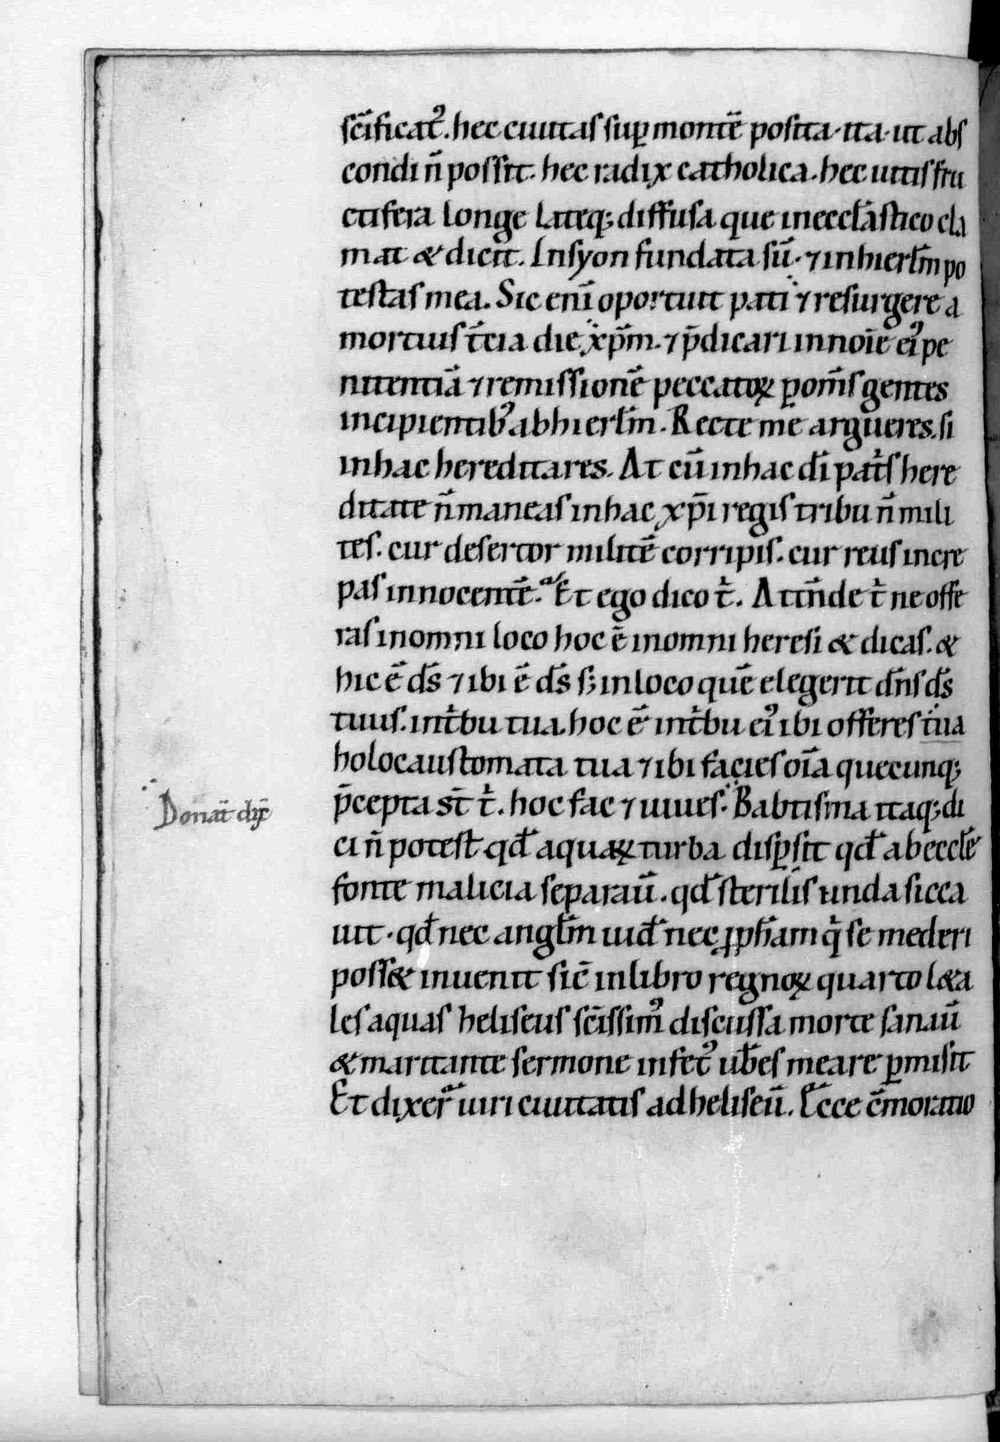 sc̄ificat᷒. hec ciuitas sup̱ montē posita· ita· ut abs
condi n̄ possit. hec radix catholica. hec uitis fru
ctifera longe lateq; diffusa que inecclāstico cla
mat & dicit. Insyon fundata sū· ⁊ inhierlm̄ po
testas mea. Sic enī oportuit pati ⁊ resurgere a
mortuis t̄cia die xp̄m. ⁊ p̄dicari innoīe ei᷒ pe
nitentiā ⁊ remissionē peccatoꝝ ꝑ om̄s gentes
incipientib᷒ abhierlm̄. Recte me argueres. si
inhac hereditares. At cū inhac dī pat̄s here
ditate n̄ maneas inhac xp̄i regis tribu n̄ mili
tes. cur desertor militē corripis. cur reus incre
pas innocentē. Et ego dico t̄. Attn̄de t̄ ne offe
ras inomni loco hoc ē inomni heresi & dicas. &
hic ē ds̄ ⁊ ibi ē ds̄ s; inloco quē elegerit dn̄s ds̄
tuus. int̄bu tua. hoc ē int̄bu ei᷒ ibi offeres tua
holocaustomata tua ⁊ ibi facies oīa quecunq;
p̄cepta st̄ t̄. hoc fac ⁊ uiues. Babtisma itaq; di
Donat̄ dix̄
ci n̄ potest qd̄ aquaꝝ turba disꝑsit qd̄ ab eccle̅
fonte malicia separauı̅. qd̄ sterilis unda sicca
uit· qd̄ nec anglm̄ uid̄ nec ꝓph̄am q̄ se mederi
poss& inuenit sic̄ inlibro regnoꝝ quarto l&a
les aquas heliseus sc̄issim᷒ discussa morte sanaū
& maritante sermone infet᷒ ub̄es meare ꝑmisit
Et dixer̄ uiri ciuitatis ad heliseū. Ecce c̄moratio